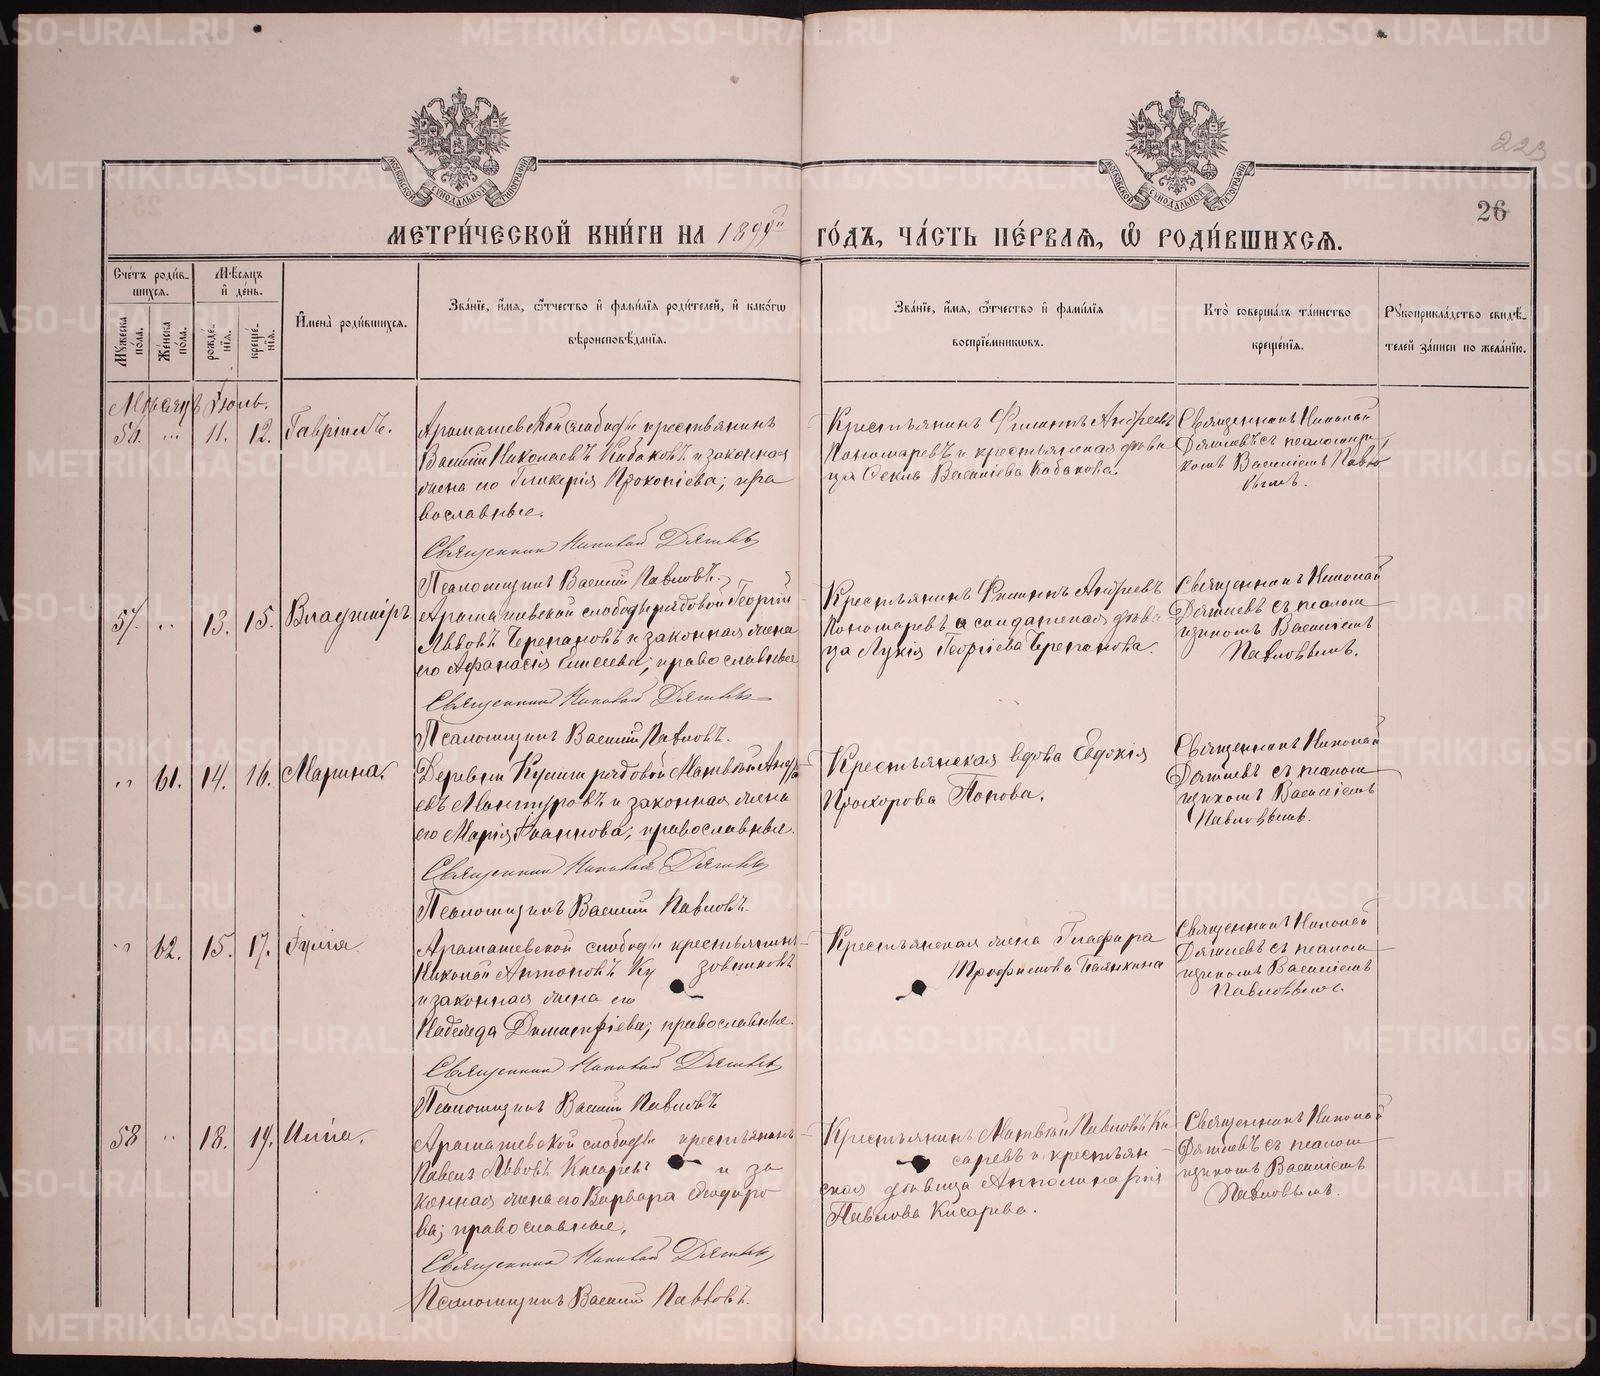 223
26
МЕТРИ́ЧЕСКОЙ КНИ́ГИ НА 1899й ГО́ДЪ, ЧА́СТЬ ПЕ́РВАЯ, Ѿ РОДИ́ВШИХСЯ.
Сче́тъ роди́в-
шихся.
Мꙋжеска по́ла.
Же́нска по́ла.
Мѣсяцъ
и҆ де́нь.
рожде́-
нїя.
креще́-
нїя.
И҆мена̀ роди́вшихся.
Зва́нїе, и҆́мя, ѻ҆́тчество и҆ фами́лїя роди́телей, и҆ како́гѡ
вѣроисповѣ́данїя.
Зва́нїе, и҆́мя, ѻ҆́тчество и҆ фами́лїя
воспрїе́мникѡвъ.
Кто̀ соверша́лъ та́инство
креще́нїя.
Рꙋкоприкла́дство свидѣ́-
телей за́писи по жела́нїю.
Мѣсяцъ Іюль.
11. 12. Гавріилъ.
Арамашевской слободы крестьянинъ
Василій Николаевъ Кабаковъ и законная
жена его Гликерія Прокопіева; пра
вославные.
Священникъ Николай Дягилевъ
Псаломщикъ Василій Павловъ.
Крестьянинъ Филиппъ Андреевъ
Пономаревъ и крестьянская дѣви
ца Фекла Василіева Кабакова.
Священникъ Николай
Дягилевъ съ псаломщи
комъ Василіемъ Павло
вымъ.
57. " 13. 15. Владиміръ
Арамашевской слободы рядовой Георгій
Львовъ Черепановъ и законная жена
его Афанасія Елисеева; православные
Священникъ Николай Дягилевъ
Псаломщикъ Василій Павловъ.
Крестьянинъ Филиппъ Андреевъ
Пономаревъ и солдатская дѣви
ца Лукія Георгіева Черепанова.
Священникъ Николай
Дягилевъ съ псалом
щикомъ Василіемъ
Павловымъ.
" 61. 14. 16. Марина.
Деревни рядовой Матвѣй Андре
евъ Мантуровъ и законная жена
его Марія Іоаннова; православные.
Священникъ Николай Дягилевъ
Псаломщикъ Василій Павловъ.
Крестьянская вдова Евдокія
Прохорова Попова.
Священникъ Николай
Дягилевъ съ псалом
щикомъ Василіемъ
Павловымъ.
" 62. 15. 17. Іулія
Арамашевской слободы крестьянинъ
Николай Антоновъ Ку зовниковъ
и законная жена его
Надежда Димитріева; православные.
Священникъ Николай Дягилевъ
Псаломщикъ Василій Павловъ
Крестьянская жена Глафира
Трофимова
Священникъ Николай
Дягилевъ съ псалом
щикомъ Василіемъ
Павловымъ.
58 " 18. 19. Илія.
Арамашевской слободы крестьянинъ
Павелъ Львовъ Кисаревъ и за
конная жена его Варвара Ѳеодоро
ва; православные.
Священникъ Николай Дягилевъ
Псаломщикъ Василій Павловъ.
Крестьянинъ Матвѣй Павловъ Ки
саревъ и крестьян
ская дѣвица Апполинарія
Павлова Кисарева.
Священникъ Николай
Дягилевъ съ псалом
щикомъ Василіемъ
Павловымъ.
METRIKI.GASO-URAL.RU